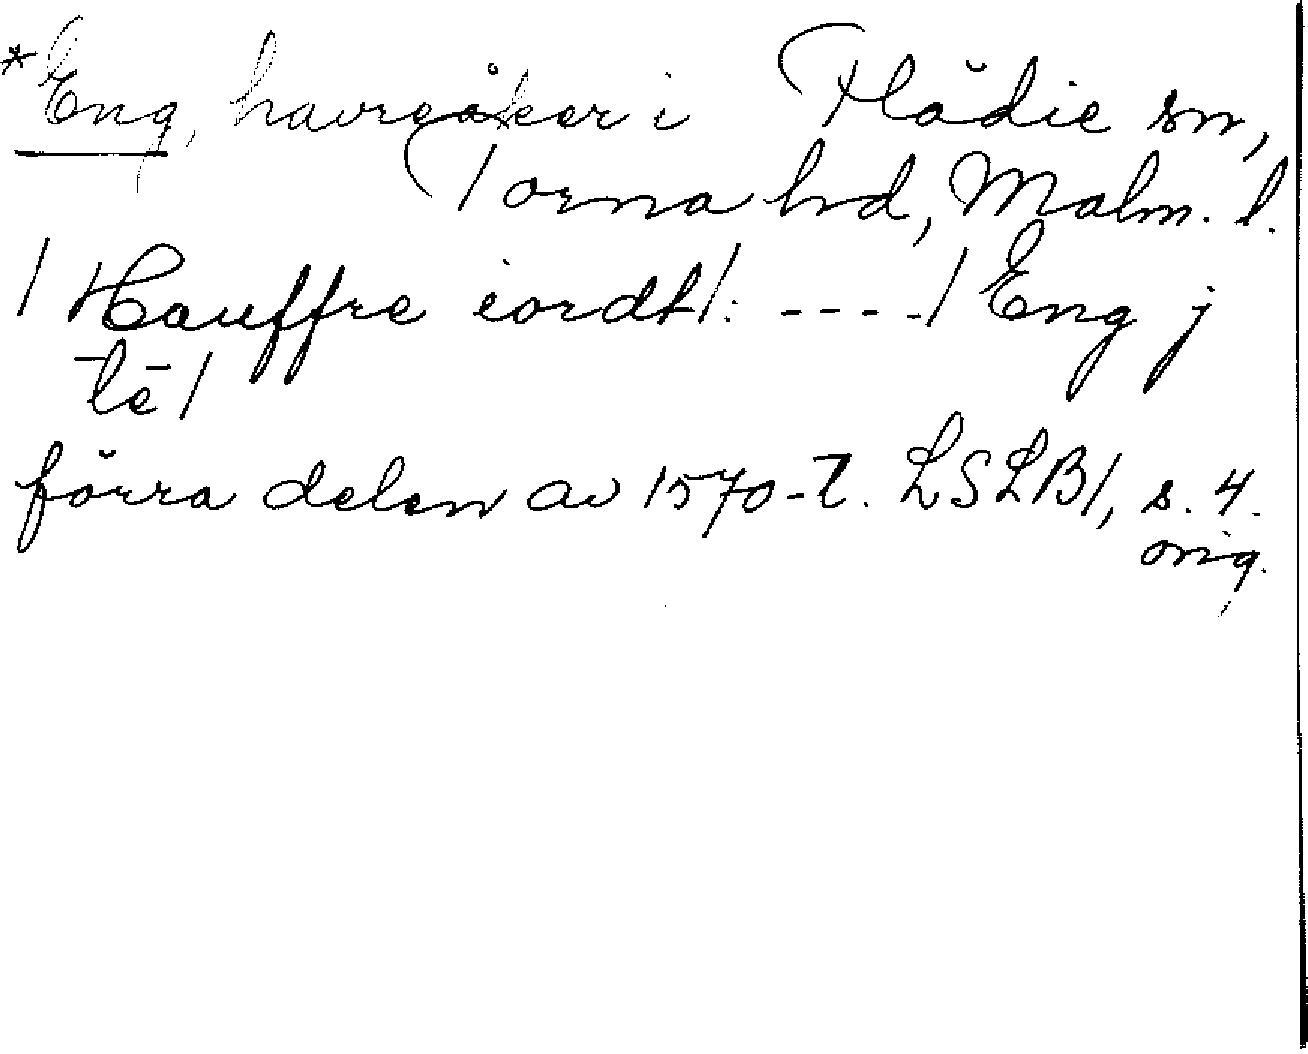 *Eng, havreåker i Flädie sn,
Torna hd, Malm. l.
/ Hauffre iordt/: ----/ Eng j
té /
förra delen av 1570-t. LSLB1, s. 4.
orig.